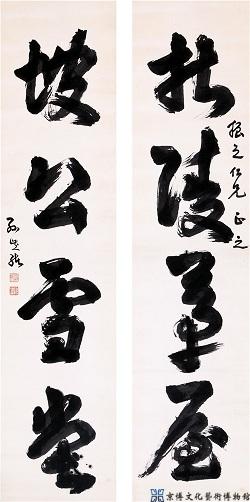 杜陵草屋
之仁兄正之
坡公雪堂
京博文化藝術博物館